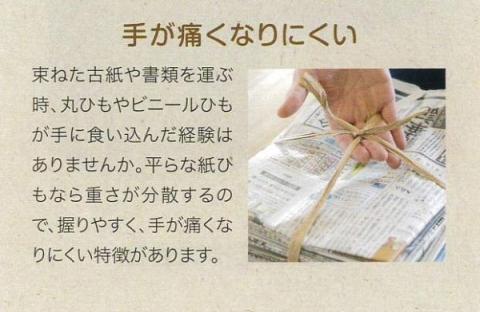 手が痛くなりにくい
束ねた古紙や書類を運ぶ
時、丸ひもやビニールひも
が手に食い込んだ経験は
ありませんか。平らな紙ひ
もなら重さが分散するの
で、握りやすく、手が痛くな
りにくい特徴があります。